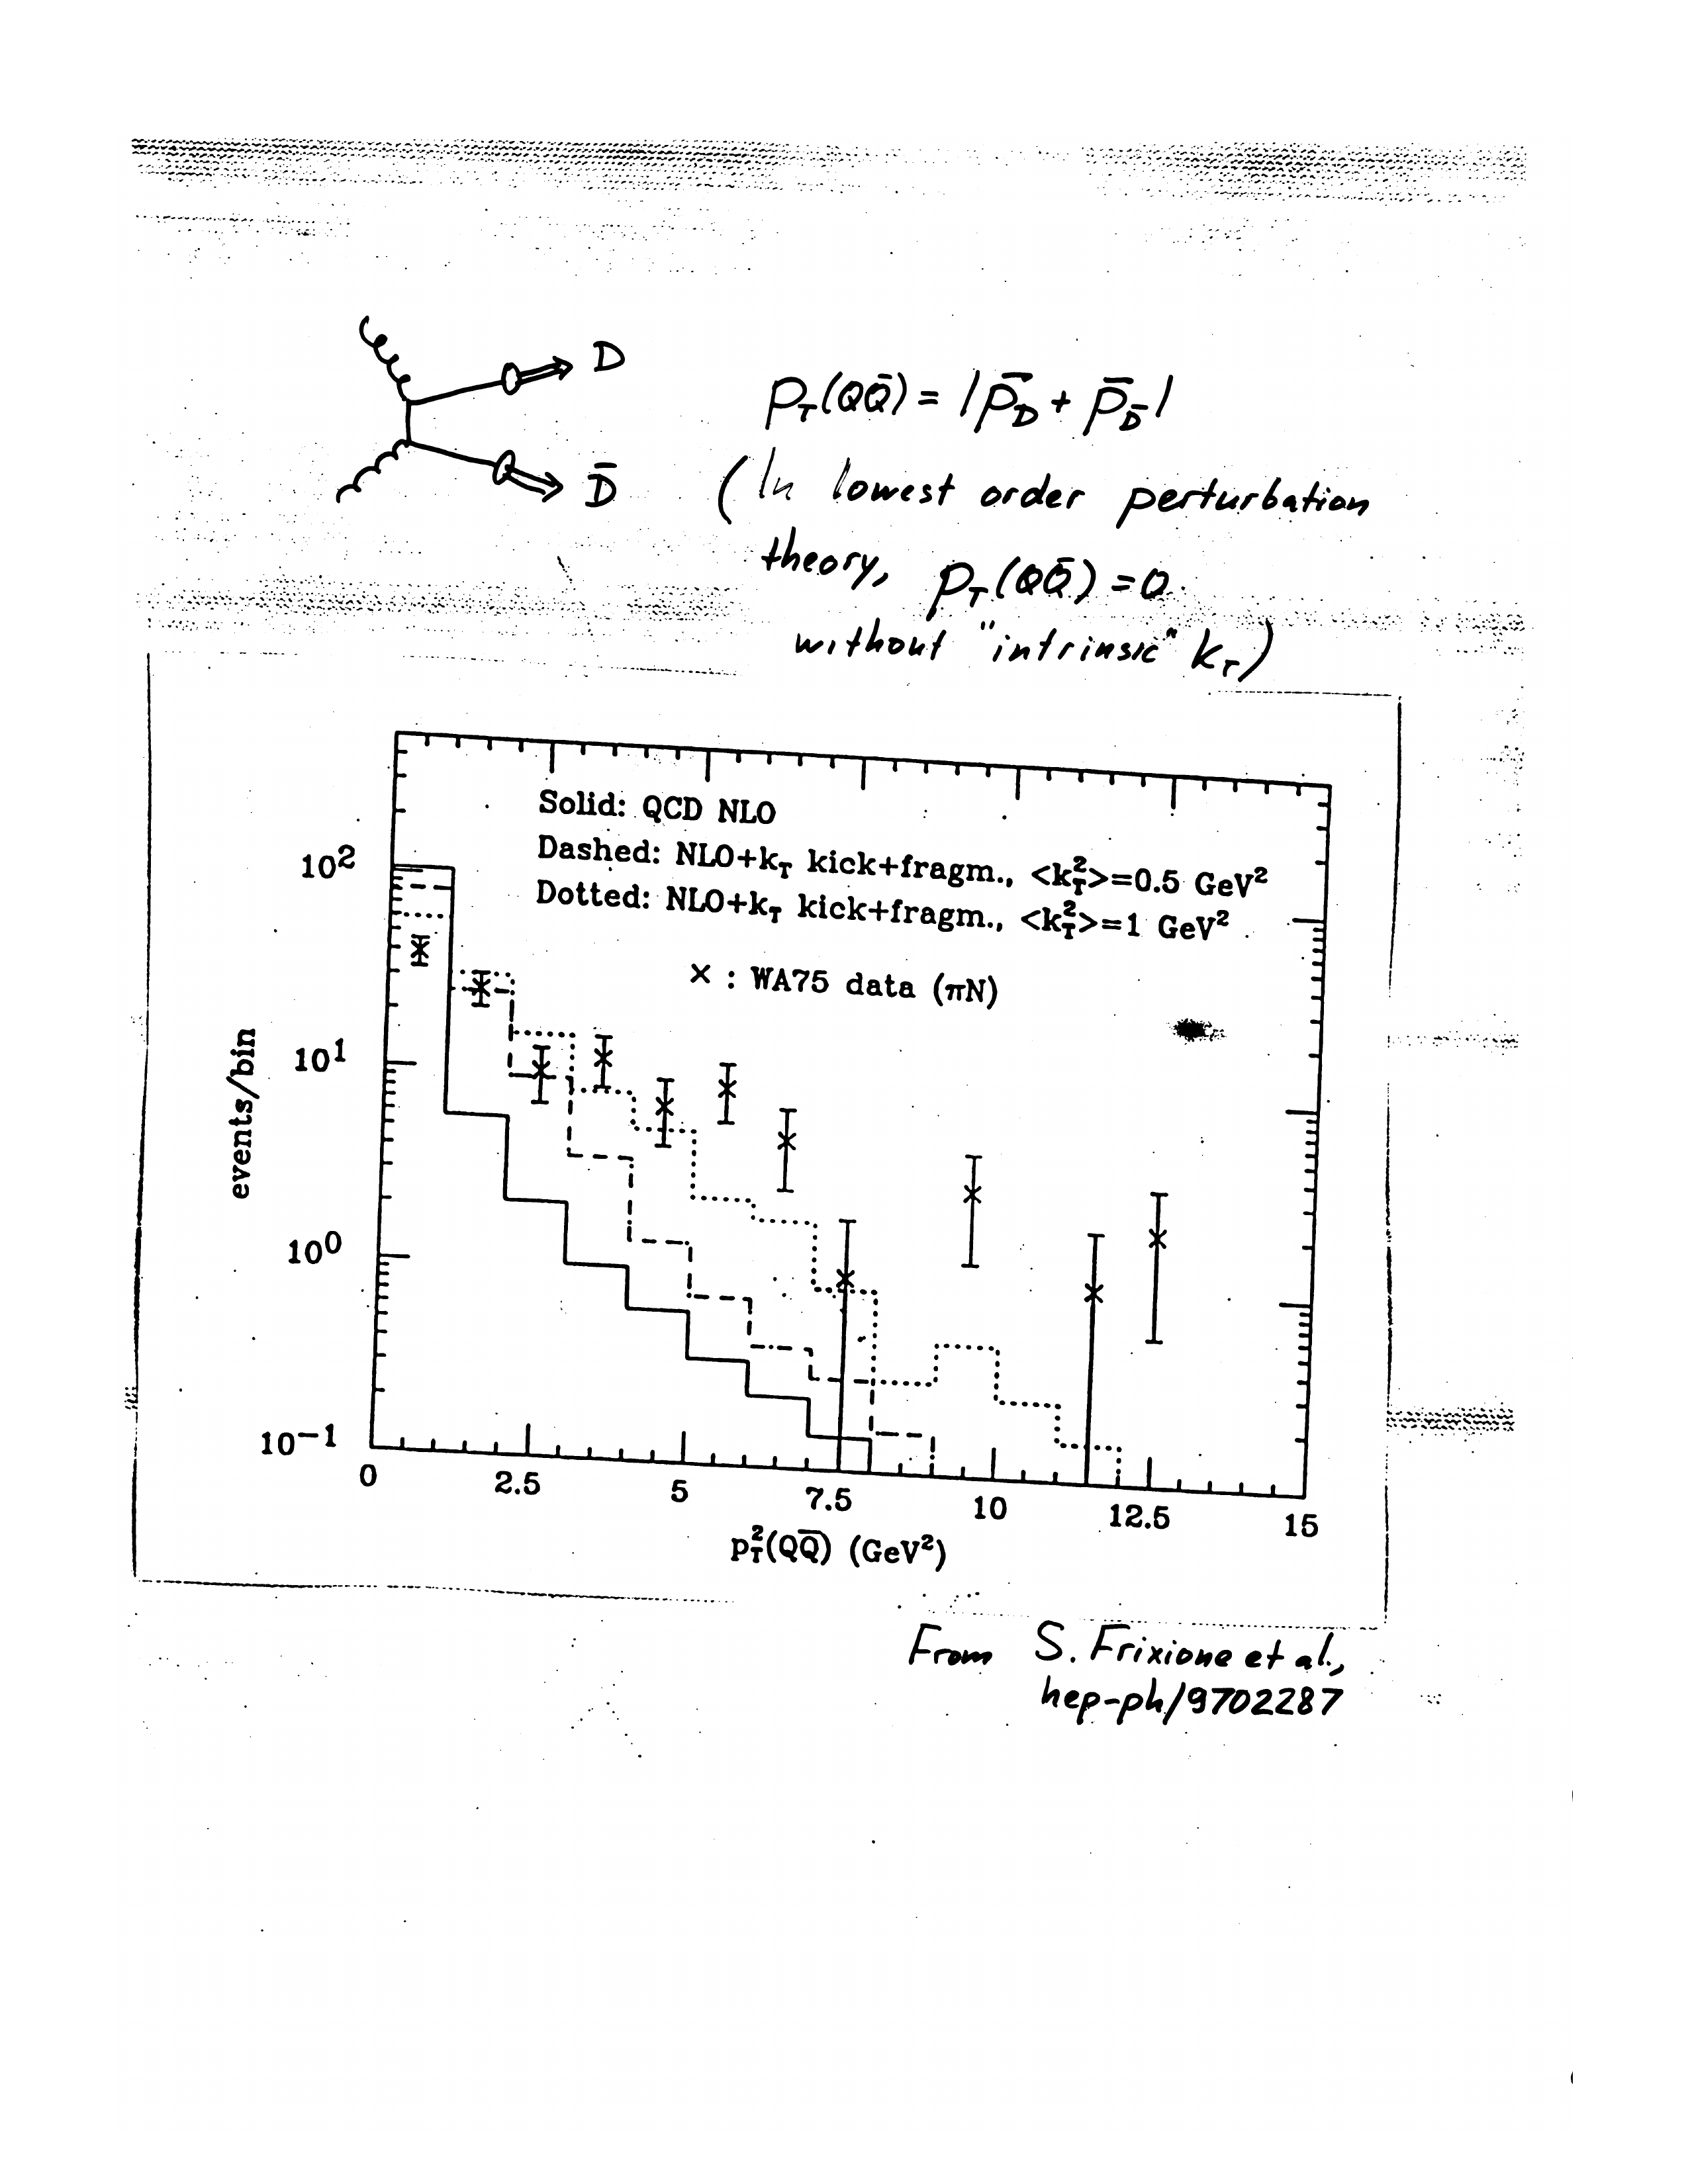 D
p_T(QQ̄) = |p̄_D + p̄_D̄|
D̄
(In lowest order perturbation
theory, p_T(QQ̄) = 0
without "intrinsic" k_T)
Solid: QCD NLO
Dashed: NLO+k_T kick+fragm., <k_T^2>=0.5 GeV²
Dotted: NLO+k_T kick+fragm., <k_T^2>=1 GeV²
× : WA75 data (πN)
events/bin
10²
10¹
10⁰
10⁻¹
0 2.5 5 7.5 10 12.5 15
p_T^2(QQ̄) (GeV²)
From S. Frixione et al.,
hep-ph/9702287